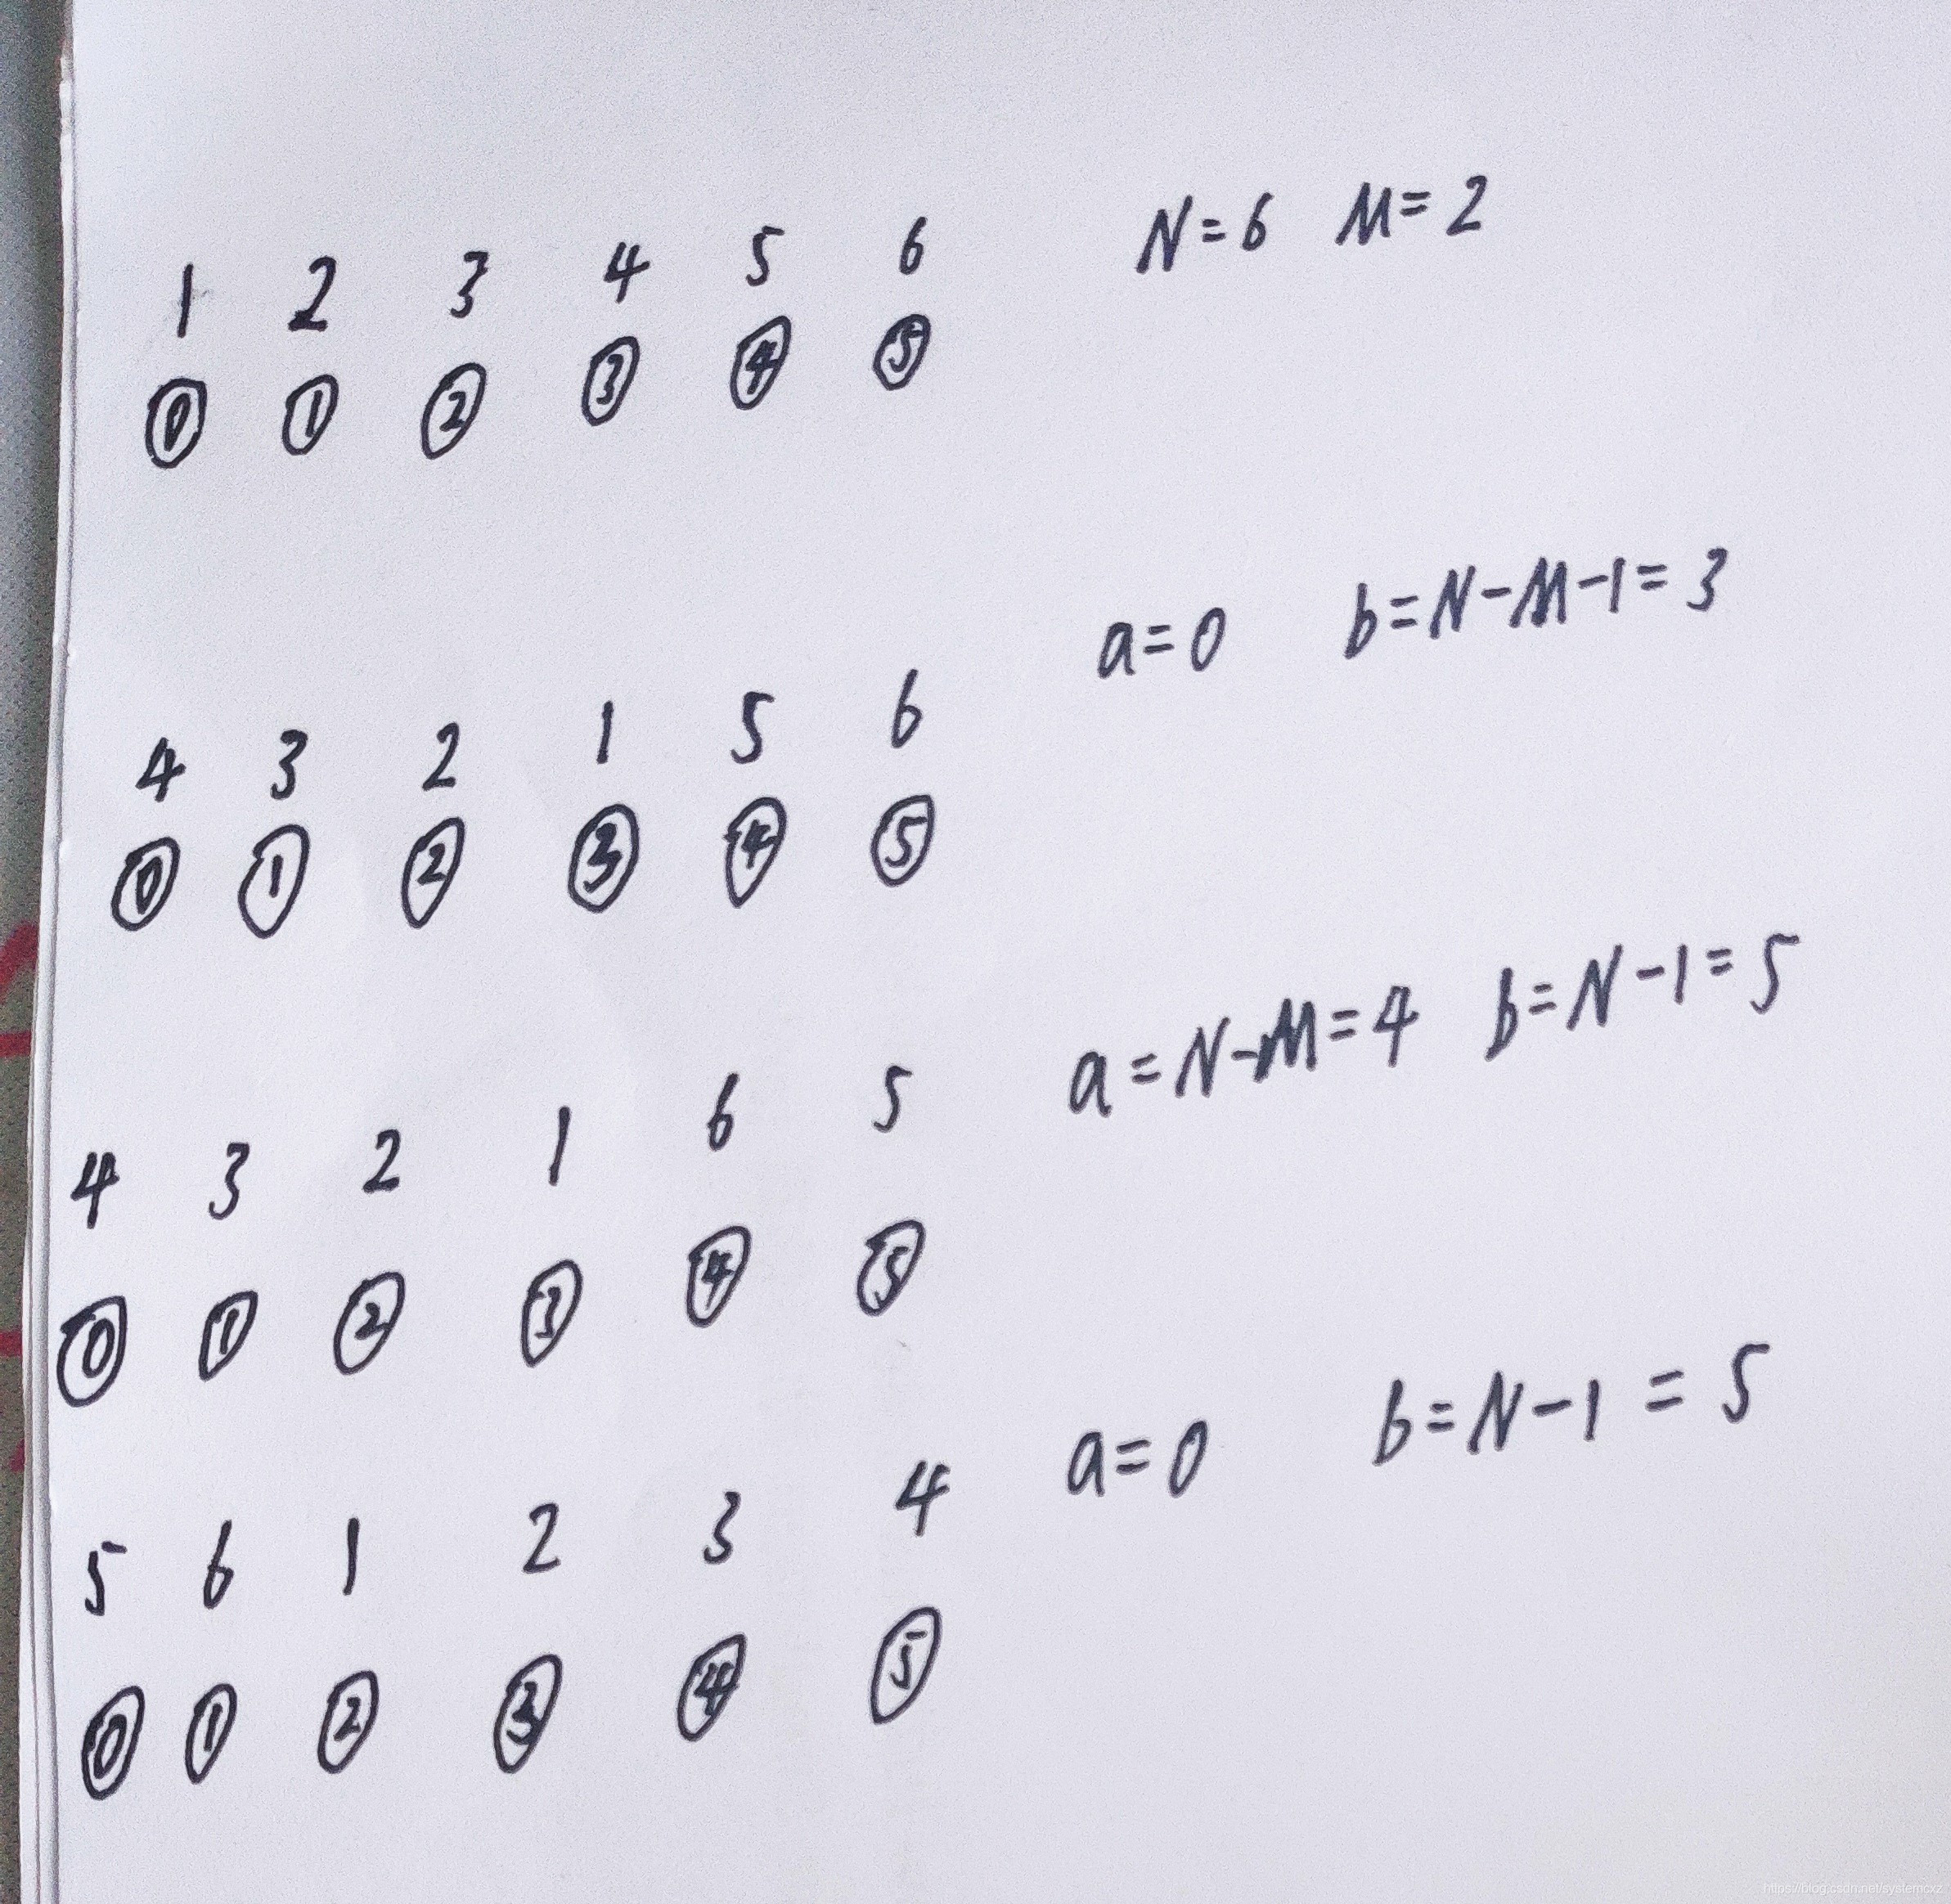 1 2 3 4 5 6 N=6 M=2
⓪ ① ② ③ ④ ⑤
a=0 b=N-M-1=3
4 3 2 1 5 6
⓪ ① ② ③ ④ ⑤
a=N-M=4 b=N-1=5
4 3 2 1 6 5
⓪ ① ② ③ ④ ⑤
a=0 b=N-1=5
5 6 1 2 3 4
⓪ ① ② ③ ④ ⑤
https://blog.csdn.net/systemcxz